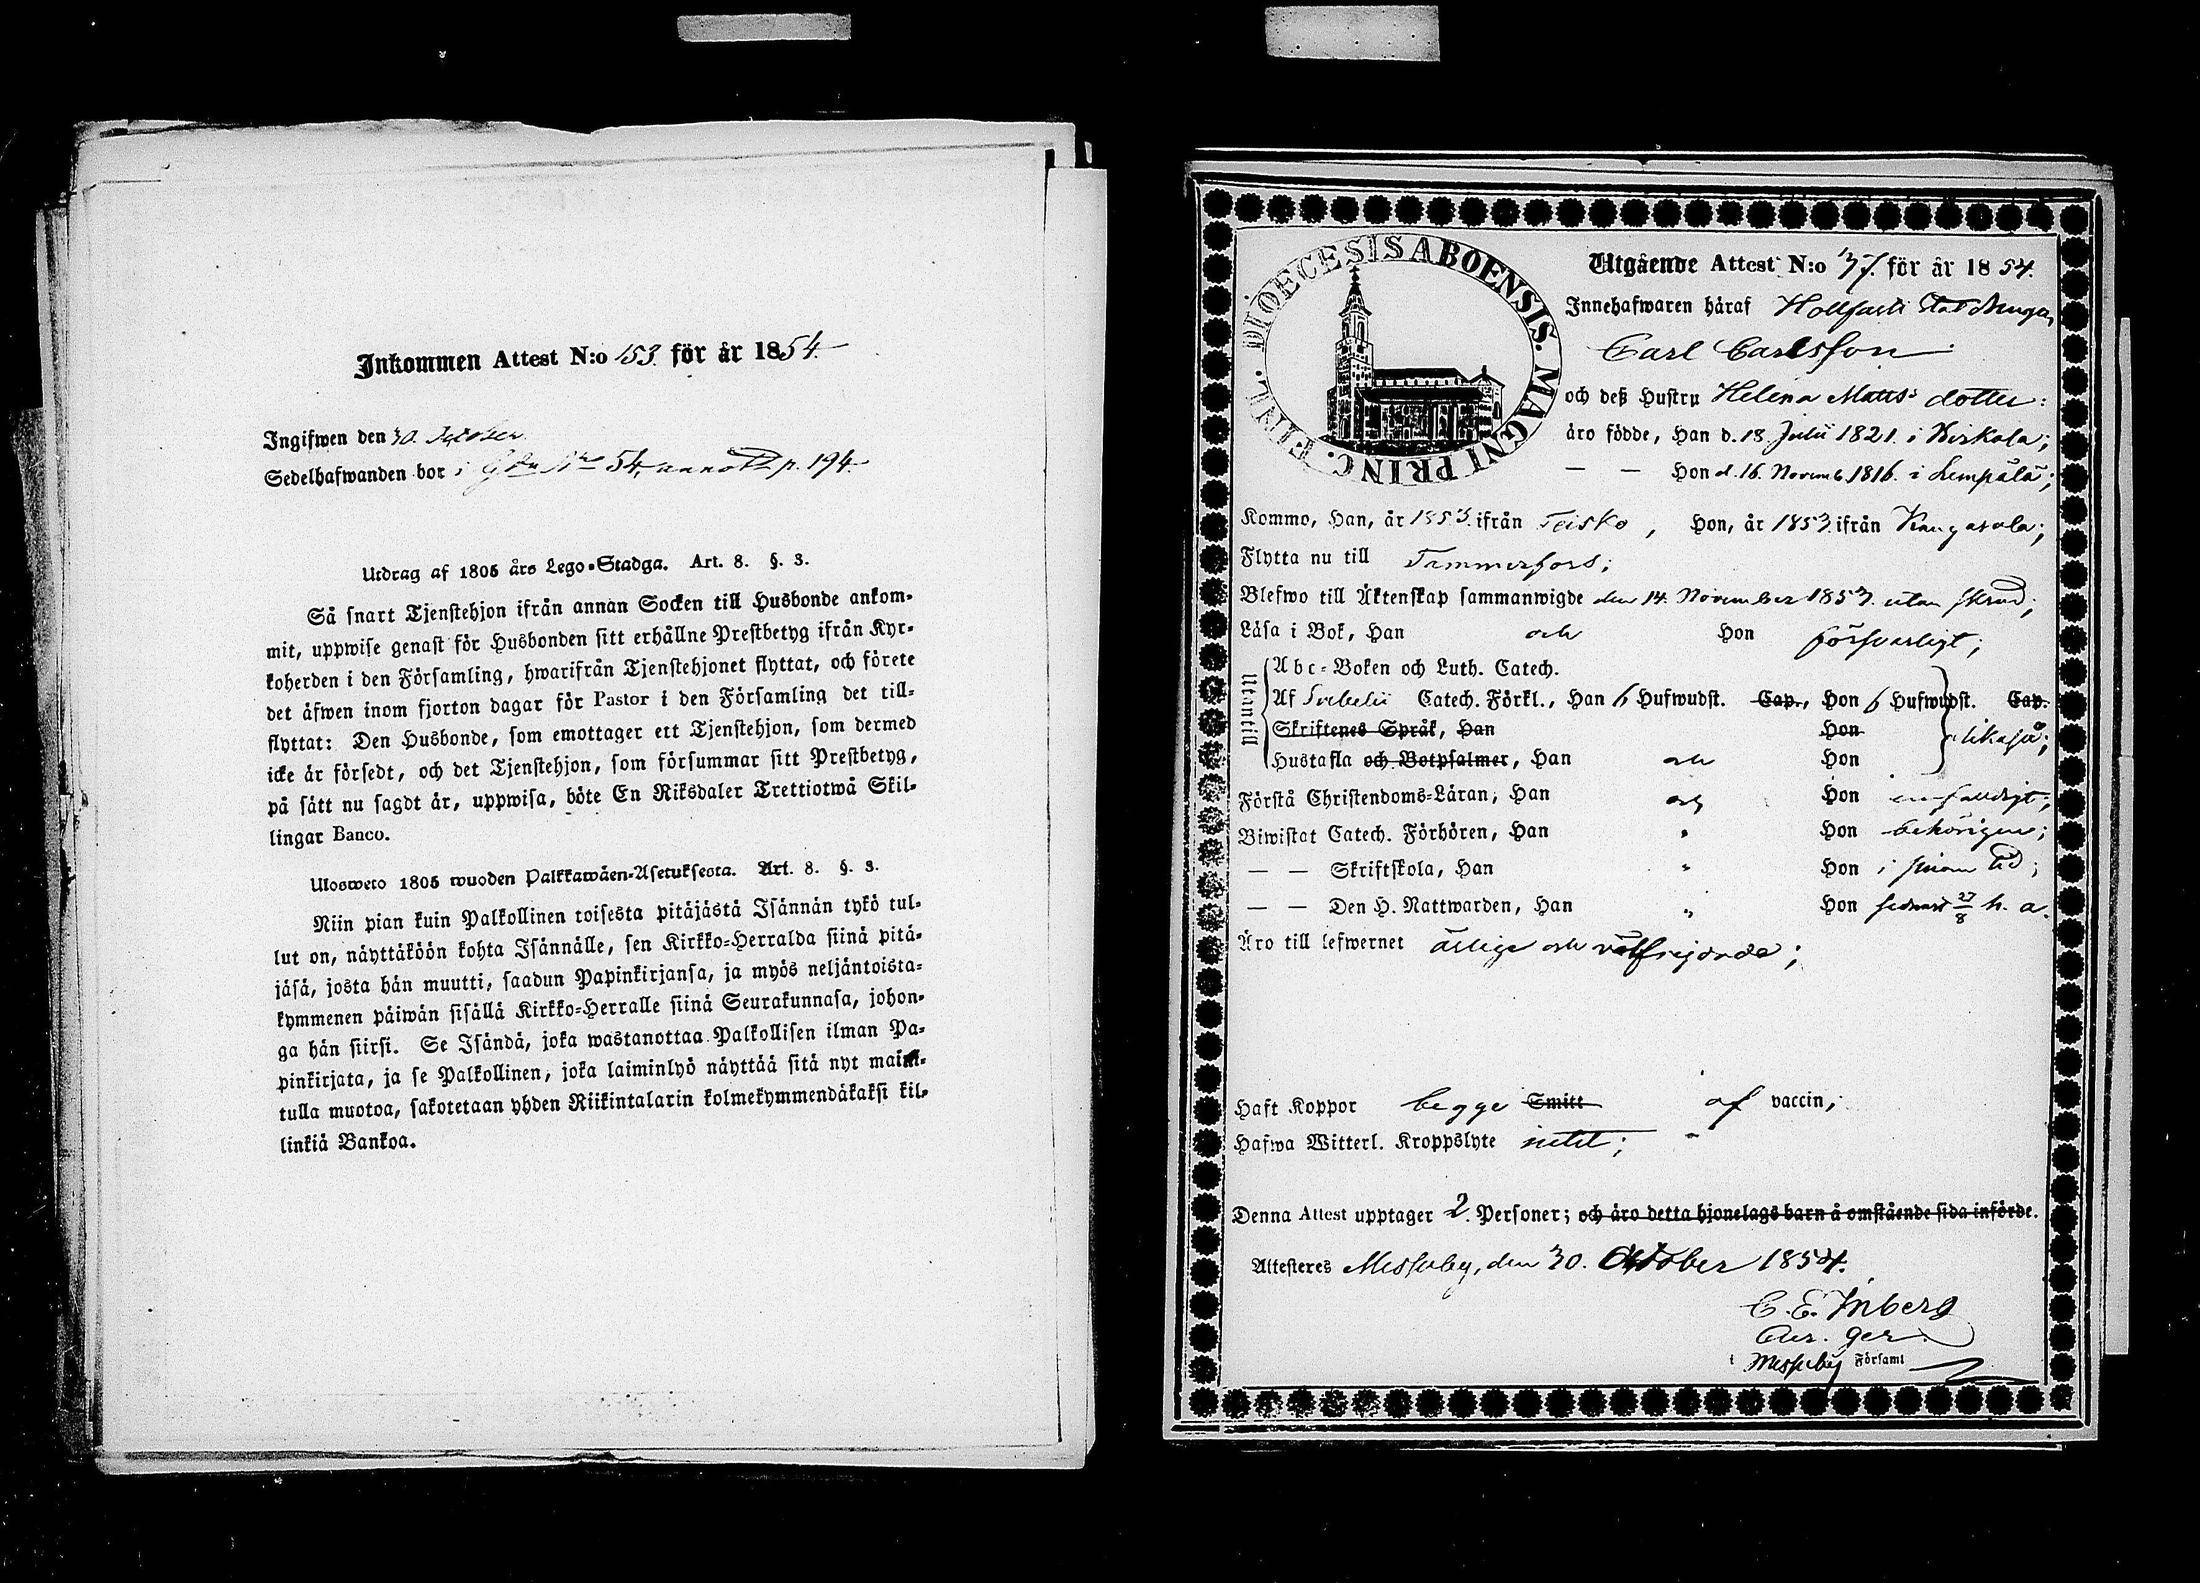 Inkommen Attest N:o 153. för år 1854.
Ingifwen den 30. October.
Sedelhafwanden bor i Gdn No 54, annot. p. 194.
Utdrag af 1805 års Lego-Stadga. Art. 8. §. 3.
Så snart Tjenstehjon ifrån annan Socken till Husbonde ankom-
mit, uppwise genast för Husbonden sitt erhållne Prestbetyg ifrån Kyr-
koherden i den Församling, hwarifrån Tjenstehjonet flyttat, och förete
det äfwen inom fjorton dagar för Pastor i den Församling det till-
flyttat: Den Husbonde, som emottager ett Tjenstehjon, som dermed
icke är försedt, och det Tjenstehjon, som försummar sitt Prestbetyg,
på sätt nu sagdt är, uppwisa, böte En Riksdaler Trettiotwå Skil-
lingar Banco.
Ulosweto 1805 wuoden Palkkawäen-Asetuksesta. Art. 8. §. 3.
Niin pian kuin Palkollinen toisesta pitäjästä Isännän tykö tul-
lut on, näyttäköön kohta Isännälle, sen Kirkko-Herralda siinä pitä-
jäsä, josta hän muutti, saadun Papinkirjansa, ja myös neljäntoista-
kymmenen päiwän sisällä Kirkko-Herralle siinä Seurakunnasa, johon-
ga hän siirsi. Se Isändä, joka wastanottaa Palkollisen ilman Pa-
pinkirjata, ja se Palkollinen, joka laiminlyö näyttää sitä nyt maini-
tulla muotoa, sakotetaan yhden Riikintalarin kolmekymmendäkaksi kil-
linkiä Bankoa.
DIOECESIS ABOENSIS. MAGNI PRINC. FINL.
Utgående Attest N:o 37. för år 1854.
Innehafwaren häraf
Carl Carlsson
och deß Hustru Helena Matts dotter:
äro födde, Han d. 18 Julii 1821. i Birkala;
— — Hon d. 16. Novemb. 1816. i Lempälä;
Kommo, Han, år 1853. ifrån Teisko, Hon, år 1853. ifrån Kangasala;
Flytta nu till Tammerfors;
Blefwo till Äktenskap sammanwigde den 14. November 1853. utan skrud;
Läsa i Bok, Han och Hon försvarligt;
Utantill
Abc-Boken och Luth. Catech.
Af Svebelii Catech. Förkl., Han 6 Hufwudst. Cap., Hon 6 Hufwudst. Cap.
Skriftenes Språk, Han Hon likaså;
Hustafla och Botpsalmer, Han och Hon
Förstå Christendoms-Läran, Han och Hon enfaldigt;
Biwistat Catech. Förhören, Han " Hon behörigen;
— — Skriftskola, Han " Hon i sinom tid;
— — Den H. Nattwarden, Han " Hon sednast 27/8 h. a.
Äro till lefwernet ärlige och välfrejdade;
Haft Koppor begge Smitt af vaccin;
Hafwa Witterl. Kroppslyte intet;
Denna Attest upptager 2. Personer; och äro detta hjonelags barn å omstående sida införde.
Attesteres Messuby, den 30. October 1854.
C. E. Inberg
Cur. ger.
i Messuby Församl